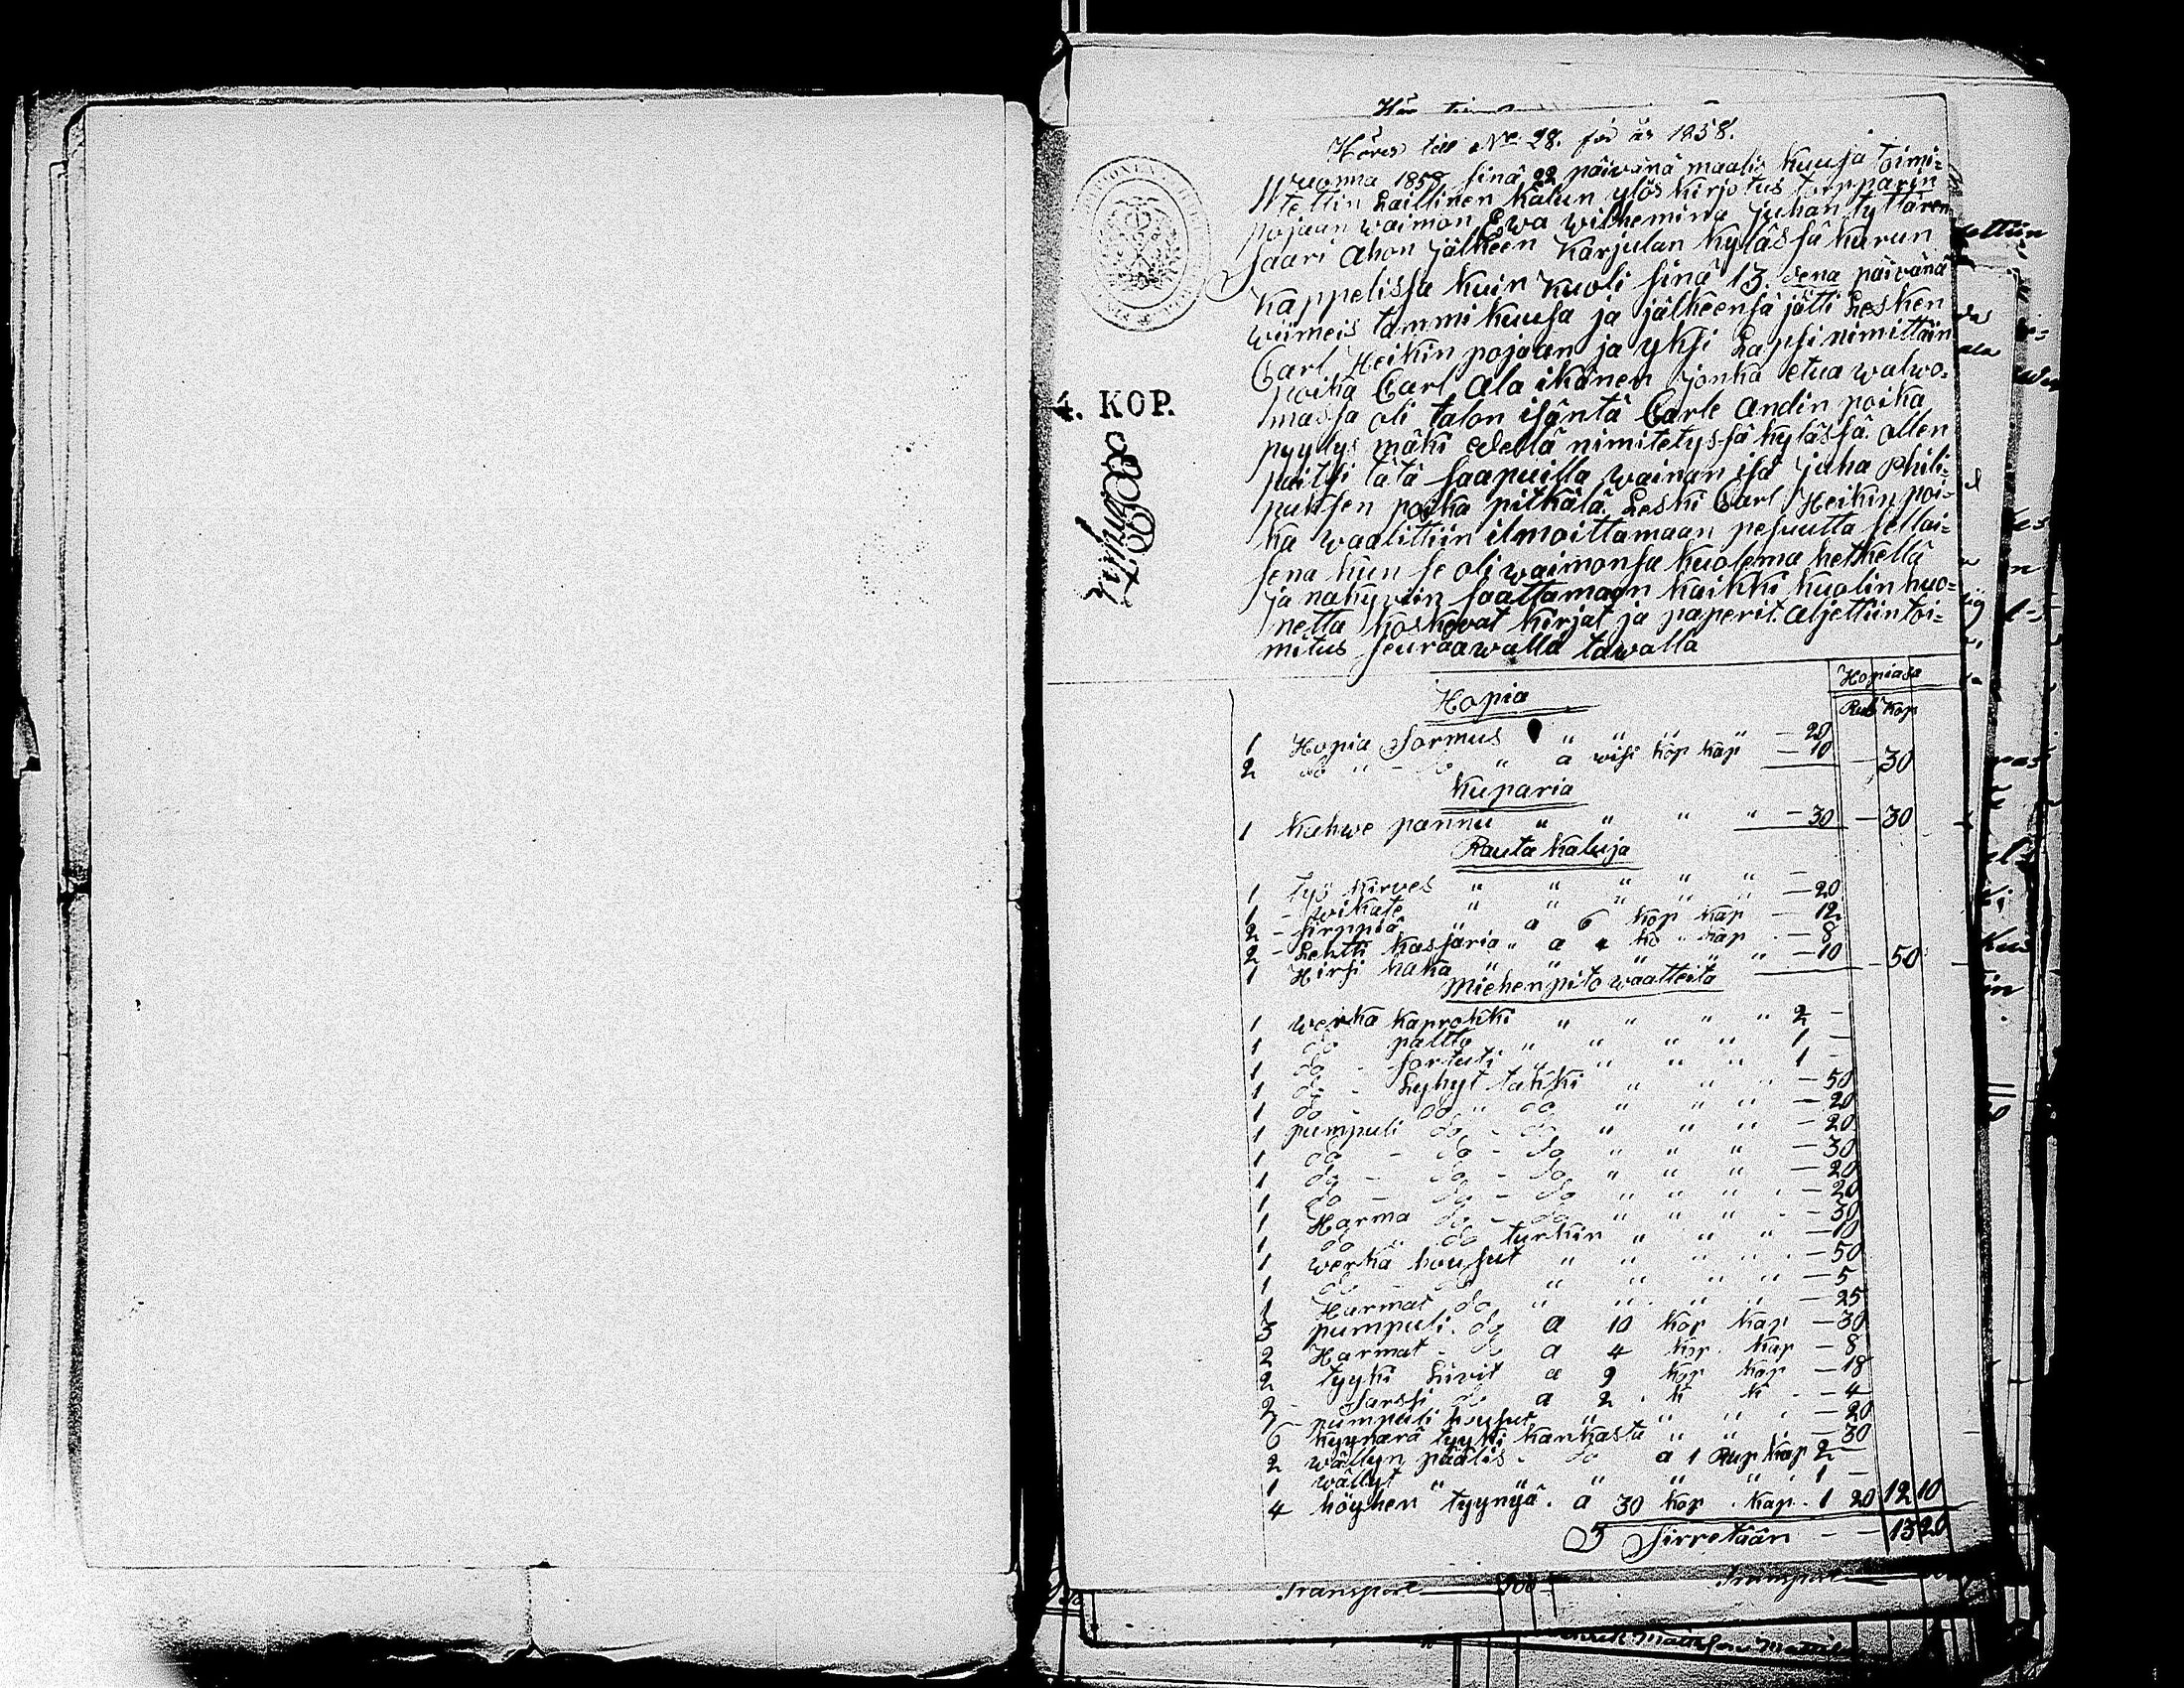 Höres till No 28. för år 1858.
Wuonna 1858 sinä 22 päivänä maalis kuusa toimi-
tettin Laillinen kalun ylös kirjotus torpparin
pojaan waimon Ewa wilhemina Juhan tyttären
saari Ahon jälkeen Karjulan kylässä kurun
Kappelissa kuin kuoli sinä 13. dena päivänä
wiimeis tammikuusa ja jälkeensä jätti Lesken
Carl Heikin pojaan ja yksi Lapsi nimittäin
poika Carl ala ikänen jonka etua walwo-
massa oli talon isäntä Carle Andin poika
pyydys mäki edellä nimitetyssä kylässä. ollen
paitsi tätä saapuilla wainan isä Juha Phili-
puksen poika pitkälä. Leski Carl Heikin poi-
ka waalittiin ilmoittamaan pesuutta sellai-
sena kun se oli waimonsa kuolema hetkellä
ja nähywiin saattamaan kaikki kuolin huo-
netta koskevat kirjat ja paperit. aljettiin toi-
mitus seuraawalla tawalla
4. KOP.
Hopiasa
Rub Kop
Hopia
1 Hopia Sormus " " " " — 20
2 do " - do " a wisi kop kap — 10 — 30
Kuparia
1 Kahwe pannu " " " " — 30 — 30
Rauta Kaluja
1 työ kirves " " " " " —
1 - wikate " " " " " — 20
2 - sirppiä " a 6 kop kap — 12
2 - Lehti kassaria " a 4 ko " kap — 8
1 Hirsi haka " " " " " — 10 — 50
Miehen pito waatteita
1 werka kaprokki " " " " 2 —
1 do paltto " " " " 1 —
1 do - sortuti " " " " 1 —
1 do - Lyhyt takki " " " — 50
1 do - do " do " " " — 20
1 pumpuli do - do " " " — 20
1 do - do - do " " " — 30
1 do - do - do " " " — 20
1 do - do - do " " " — 20
1 Harma do - do " " " — 30
1 do " do turkin " " " — 10
1 werka housut " " " " — 50
1 do - do " " " " — 5
1 Harmat do " " " " — 25
3 pumpuli. do a 10 kop kap — 30
2 Harmat - do a 4 kop. kap — 8
2 tyyki Liivit a 9 kop kap — 18
2 - Sarssi do a 2 . k k — 4
pumpuli housut " " " — 20
6 kyynärä tyyki kankasta " " — 30
2 wällyn päälis - do a 1 Rup kap 2 —
1 wällyt " " " " " 1 —
4 höyhen tyynyä. a 30 kop. kap. 1 20 12 10
Sirretään — — 13 20
Transport